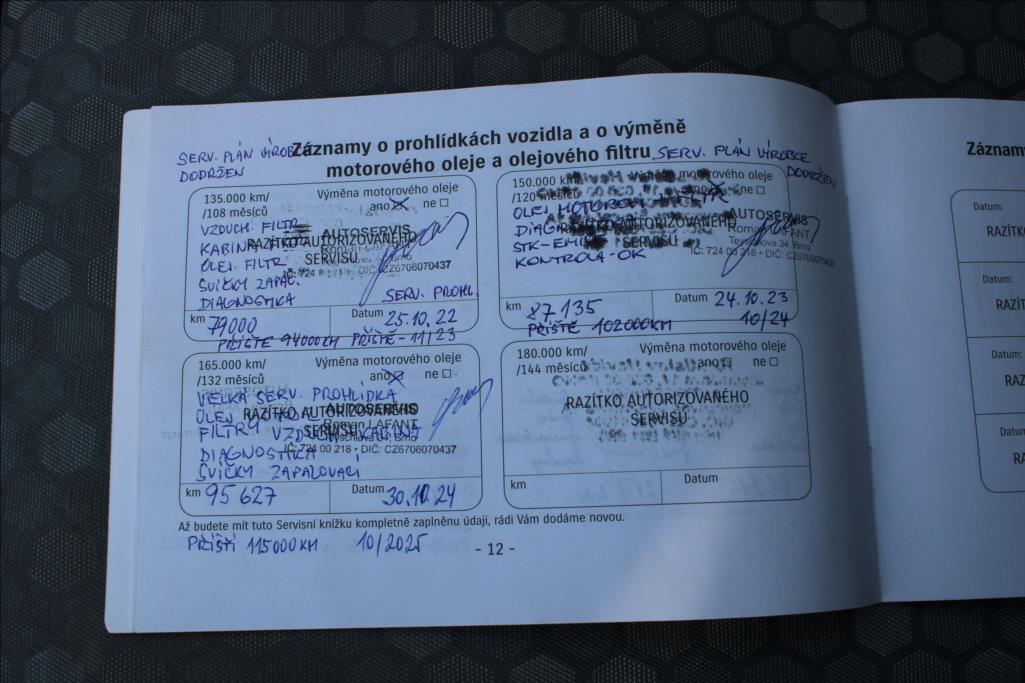 Záznamy o prohlídkách vozidla a o výměně
motorového oleje a olejového filtru
SERV. PLÁN VÝROBCE
DODRŽEN
SERV. PLÁN VÝROBCE
DODRŽEN
135.000 km/
/108 měsíců
Výměna motorového oleje
ano ☒ ne ☐
VZDUCH. FILTR
KABIN. FILTR
OLEJ. FILTR
SVÍČKY ZAPAL.
DIAGNOSTIKA
RAZÍTKO AUTORIZOVANÉHO
SERVISU
AUTOSERVIS
IČ: 724 DIČ: CZ6706070437
SERV. PROHL.
km 79000
Datum 25.10.22
PŘÍŠTĚ 94000KM PŘÍŠTĚ - 11/23
150.000 km/
/120 měsíců
Výměna motorového oleje
ano ☒ ne ☐
OLEJ MOTOROVÝ
STK-EMISE
KONTROLA-OK
RAZÍTKO AUTORIZOVANÉHO
SERVISU
AUTOSERVIS
Roman LAFANT
Teyschlova 34, Brno
IČ: 724 00 218 • DIČ: CZ6706070437
km 87 135
Datum 24.10.23
PŘÍŠTĚ 102000KM 10/24
165.000 km/
/132 měsíců
Výměna motorového oleje
ano ☒ ne ☐
VELKÁ SERV. PROHLÍDKA
OLEJ
FILTRY VZDUCH. KABINY
DIAGNOSTIKA
SVÍČKY ZAPALOVACÍ
RAZÍTKO AUTORIZOVANÉHO
SERVISU
AUTOSERVIS
Roman LAFANT
Teyschlova 34, Brno
IČ: 724 00 218 • DIČ: CZ6706070437
km 95 627
Datum 30.10.24
180.000 km/
/144 měsíců
Výměna motorového oleje
ano ☐ ne ☐
RAZÍTKO AUTORIZOVANÉHO
SERVISU
km
Datum
Až budete mít tuto Servisní knížku kompletně zaplněnu údaji, rádi Vám dodáme novou.
PŘÍŠTÍ 115000KM 10/2025
- 12 -
Záznam
Datum:
RAZÍTK
Datum:
RAZÍ
Datu
RAZ
Datun
RA